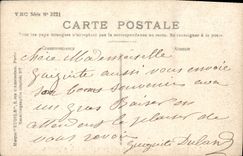 V.H.C Série Nº 3221
CARTE POSTALE
Tous les pays étrangers n'acceptent pas la correspondance au recto. Se renseigner à la poste.
Correspondance Adresse
Chère Mademoiselle
Guiguite aussi vous envoie
son bons souvenir avec
un gros Baiser en
attendant le plaisir de
vous revoir
Guiguite Duband